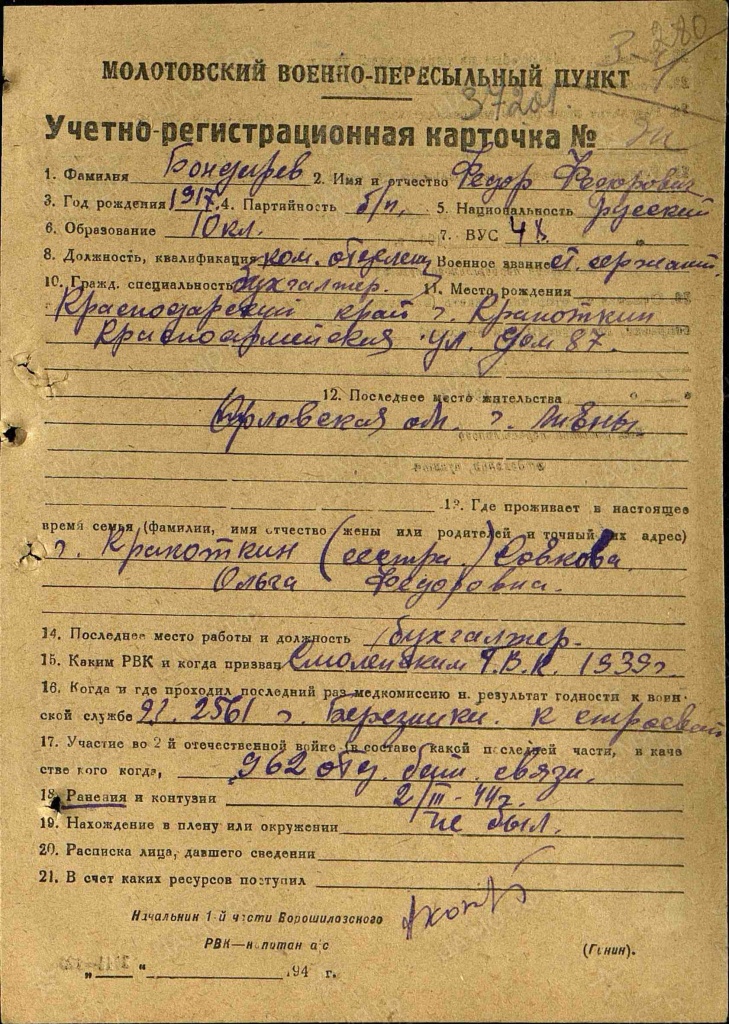 МОЛОТОВСКИЙ ВОЕННО-ПЕРЕСЫЛЬНЫЙ ПУНКТ
37201.
Учетно-регистрационная карточка №
1. Фамилия Бондарев 2. Имя и отчество Федор Федорович
3. Год рождения 1917. 4. Партийность б/п. 5. Национальность русский
6. Образование 10 кл. 7. ВУС
8. Должность, квалификация ком. отделен Военное звание ст. сержант.
10. Гражд. специальность бухгалтер. 11. Место рождения
Краснодарский край г. Крапоткин
Красноармейская ул. дом 87.
12. Последнее место жительства
Орловская обл. г. Ливны.
13. Где проживает в настоящее
время семья (фамилии, имя отчество жены или родителей и точный их адрес)
г. Крапоткин (сестра) Совкова
Ольга Федоровна.
14. Последнее место работы и должность бухгалтер.
15. Каким РВК и когда призван Смоленским Г.В.К. 1939 г.
16. Когда и где проходил последний раз медкомиссию и. результат годности к воин-
ской службе г. Березники. к строевой
17. Участие во 2-й отечественной войне (в составе какой последней части, в каче
стве кого когда, 962 отд. бат. связи.
18. Ранения и контузии 2/III-44 г.
19. Нахождение в плену или окружении не был.
20. Расписка лица, давшего сведении
21. В счет каких ресурсов поступил
Начальник 1-й части Ворошиловского
РВК—капитан а/с
(Генин).
„ “ 194 г.